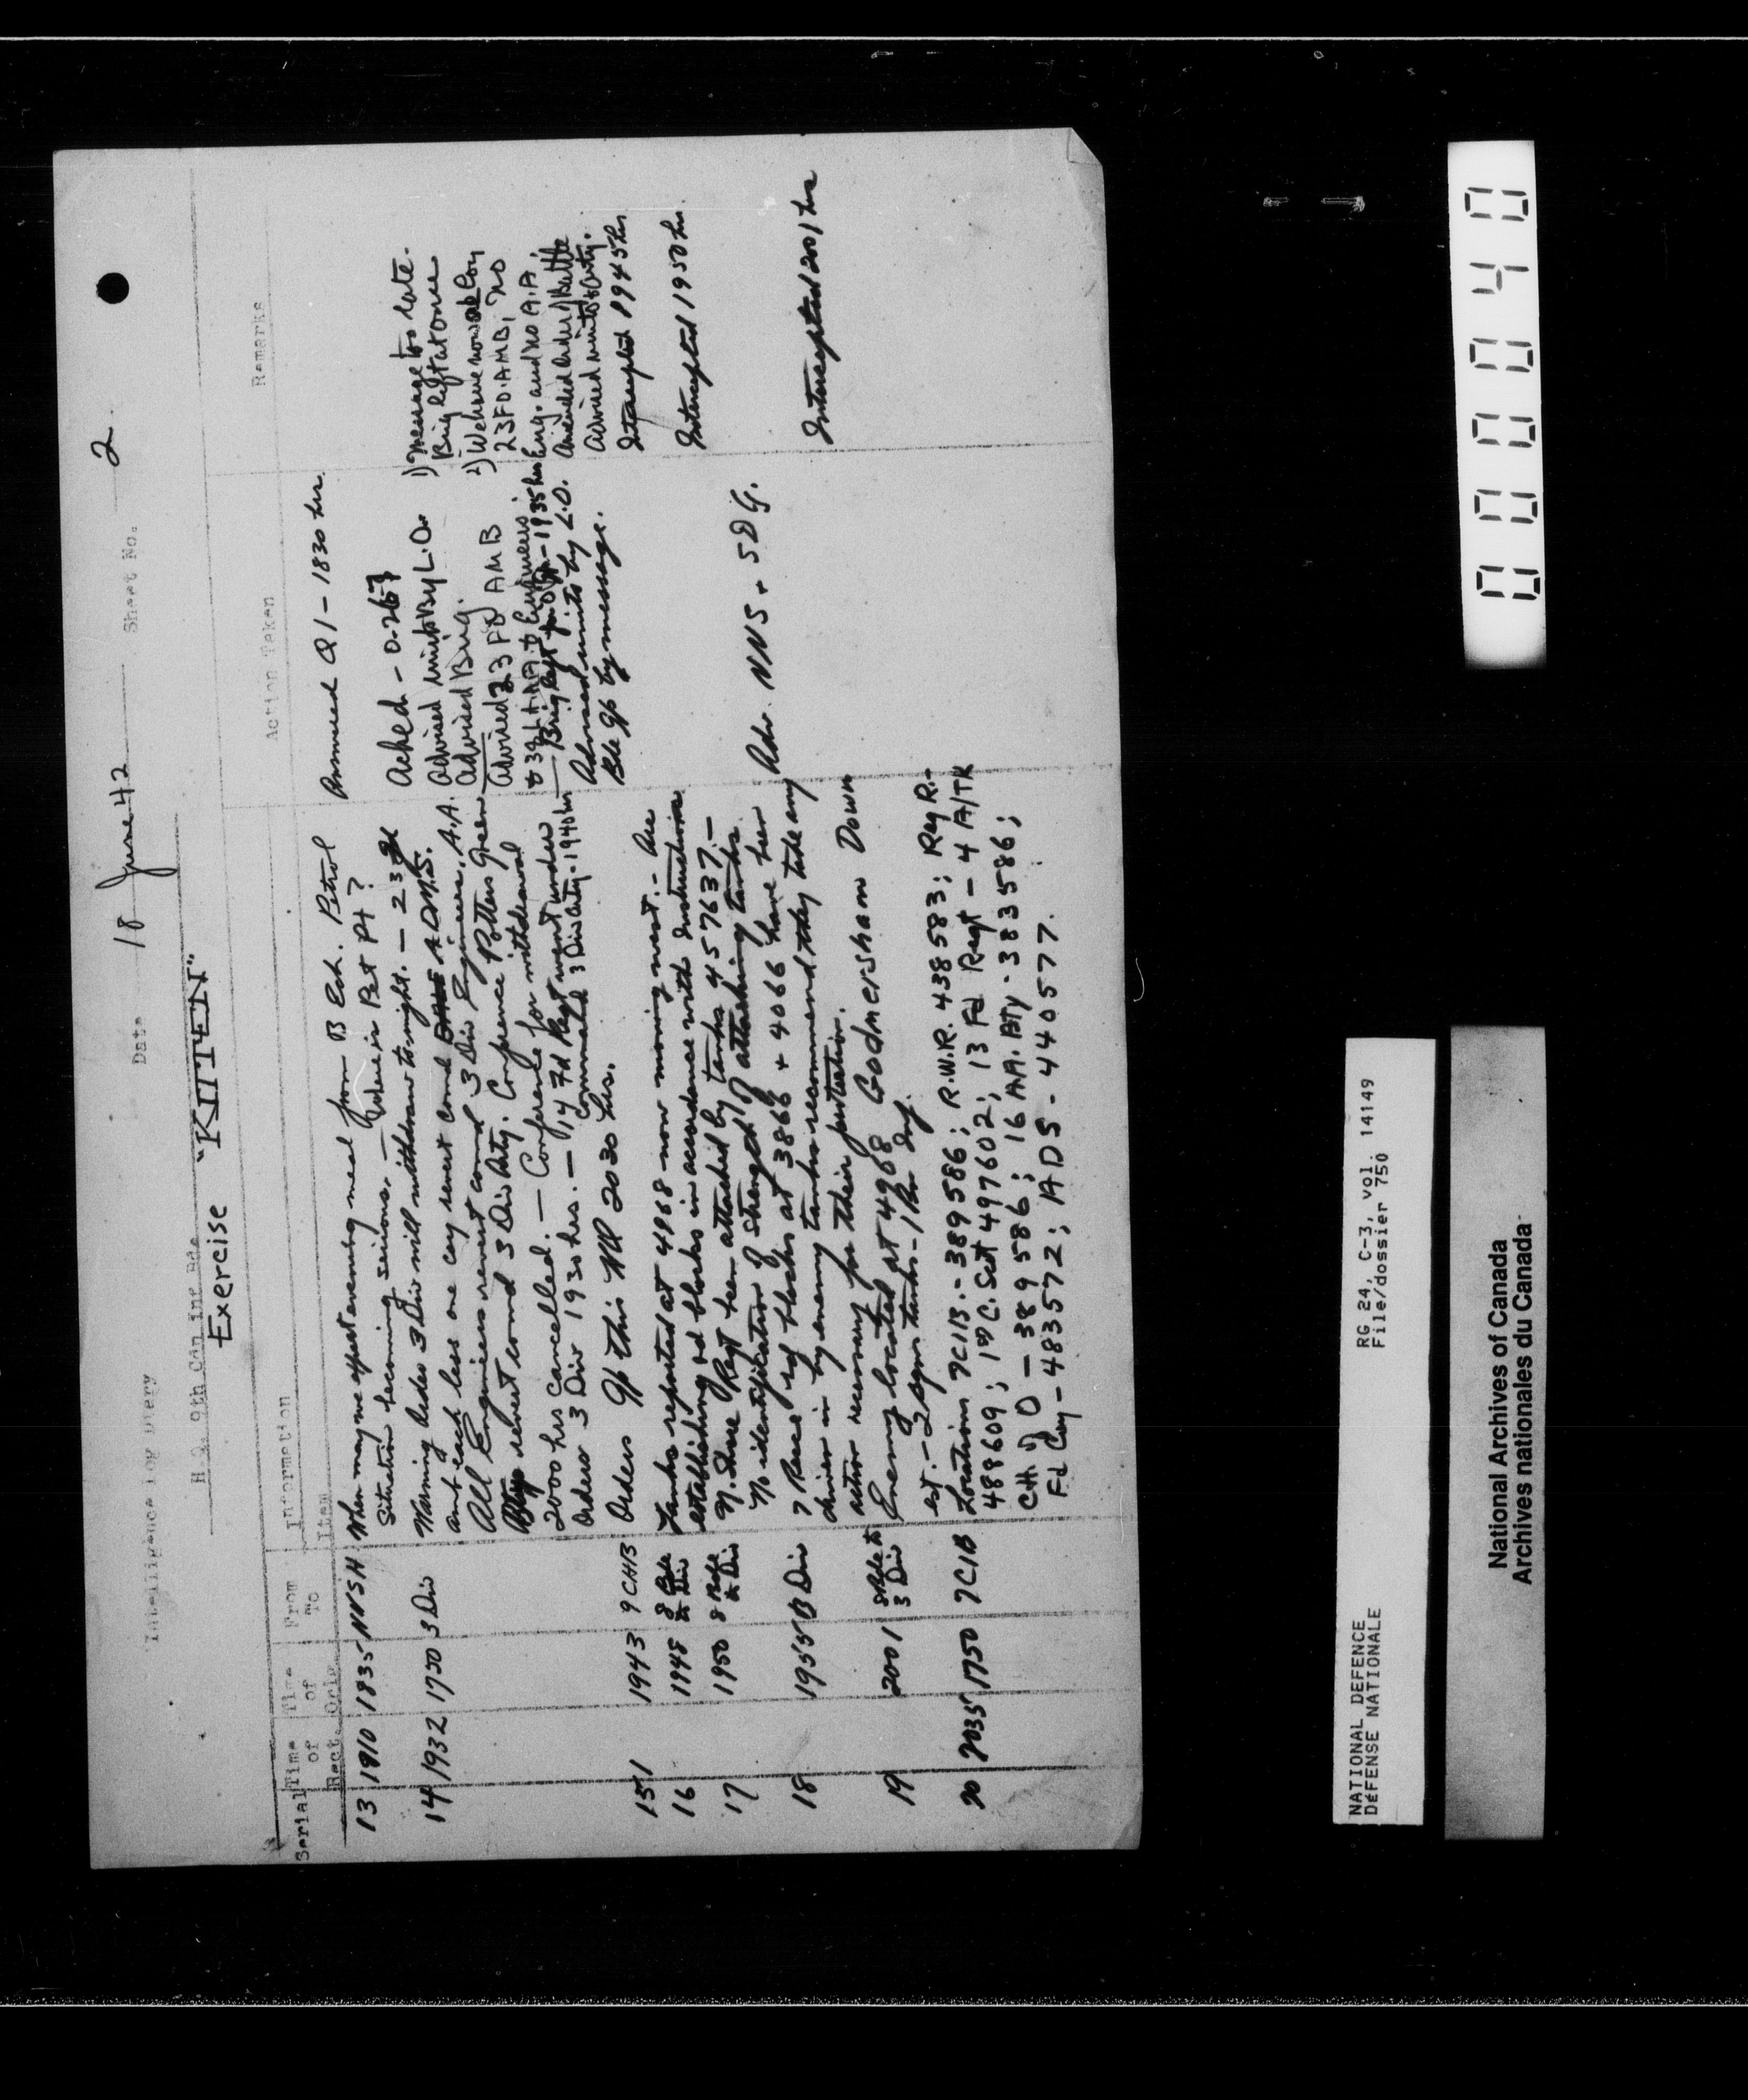 Intelligence Log Diary Date 18 June 42 Sheet No. 2.
H.Q. 9th Cdn Inf Bde
Exercise "KITTEN"
Serial
Time of Rect.
Time of Orig.
From To
Information
Item
Action Taken
Remarks
13 1910 1835 NNSH When may we expect evening meal from B Ech. Petrol
Situation becoming serious. — Where is Pet Pt?
Answered Q1 – 1830 hrs.
14 1932 1720 3 Div Warning Order 3 Div will withdraw tonight. — 23
amb each less one coy revert comd A.D.M.S.
All Engineers revert comd 3 Div Engineers. A.A.
revert comd 3 Div Arty. Conference Potters Green
2000 hrs cancelled. — Conference for withdrawal
Orders 3 Div 1930 hrs. — 14 Fd Regt went under
command 3 Div Arty - 1940 hrs
Acked – 0.267
Advised units By L.O.
Advised Brig.
Advised 23 FD AMB
Engineers
Brig left for — 1935 hrs
Advised units by L.O.
Bde Gp by message.
1) Message too late.
Brig left at once
2) We have now Coy
23 FD. AMB, no
Eng. and no A.A.
Advised units & Arty.
15 1943 9 CHB Orders Gp this HQ 2030 hrs.
Intercepted 1945 hrs
16 1945 8 Bde to Div Tanks reported at 4868 now moving west. – Are
establishing rd blocks in accordance with instructions
Intercepted 1950 hrs.
17 1950 8 Bde to Div N. Shore Regt been attacked by tanks 457637. —
No identification of strength of attacking tanks
18 1955 3 Div 7 Recce rd blocks at 3866 + 4066 have been
driven in by enemy tanks recommend they take any
action necessary for their protection.
Adv. NNS + SDG.
19 2001 8 Bde to 3 Div Enemy located at 4968 Godmersham Down
est. – 2 sqns tanks – 1 Bn Inf.
Intercepted 2001 hrs
20 2035 1750 7CIB Locations 7CIB. - 389586; R.W.R. 438583; Reg R. -
488609; 1st C. Scot 497602; 13 Fd Regt – 4 A/TK
– 389586; 16 A.A. BTy - 383586;
Fd Coy – 483572; ADS - 440577.
000040
NATIONAL DEFENCE
DÉFENSE NATIONALE
RG 24, C-3, vol. 14149
File/dossier 750
National Archives of Canada
Archives nationales du Canada